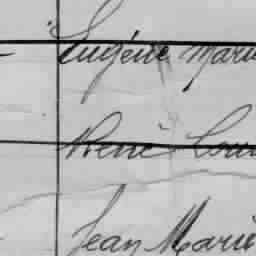 Eugène Marie
René Loui
Jean Marie